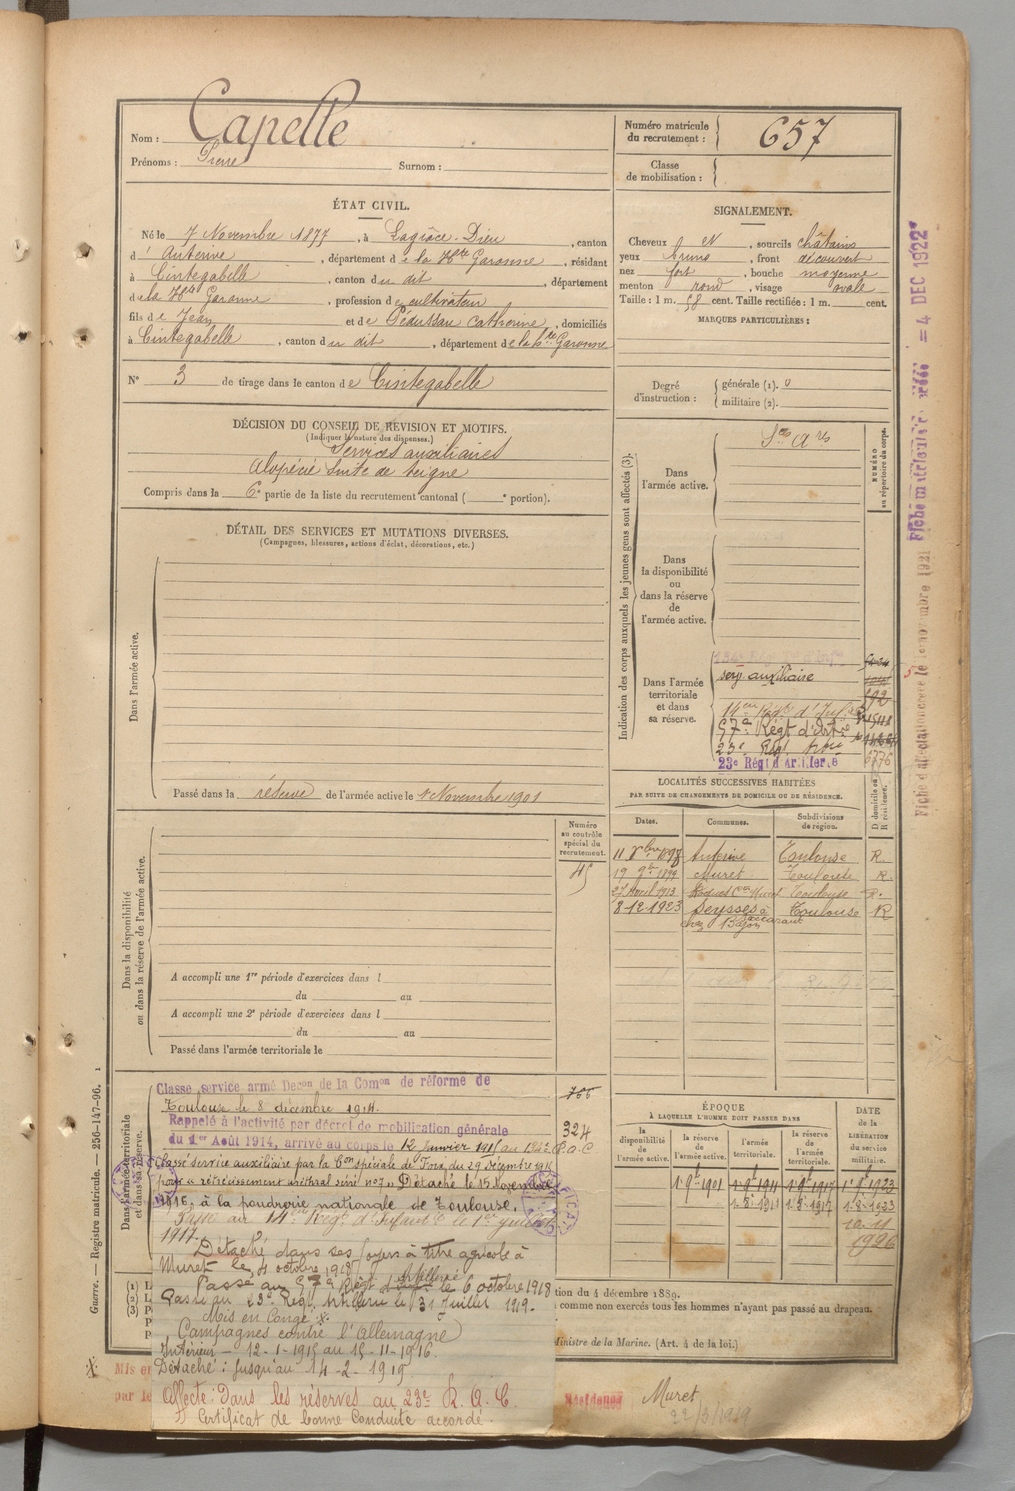 Nom : Capelle
Prénoms : Pierre Surnom :
Numéro matricule du recrutement : 657
Classe de mobilisation :
ÉTAT CIVIL.
Né le 7 Novembre 1877, à Lagrâce-Dieu, canton
d'Auterive, département de la Hte Garonne, résidant
à Cintegabelle, canton du dit, département
de la Hte Garonne, profession de cultivateur
fils de Jean et de Pédussau Catherine, domiciliés
à Cintegabelle, canton du dit, département de la Hte Garonne
N° 3 de tirage dans le canton de Cintegabelle
SIGNALEMENT.
Cheveux et, sourcils châtains
yeux bruns, front découvert
nez fort, bouche moyenne
menton rond, visage ovale
Taille : 1 m. 58 cent. Taille rectifiée : 1 m. cent.
MARQUES PARTICULIÈRES :
Degré d'instruction : générale (1).
militaire (2).
DÉCISION DU CONSEIL DE RÉVISION ET MOTIFS.
(Indiquer la nature des dispenses.)
Services auxiliaires
Alopécie suite de teigne
Compris dans la 6e partie de la liste du recrutement cantonal ( e portion).
DÉTAIL DES SERVICES ET MUTATIONS DIVERSES.
(Campagnes, blessures, actions d'éclat, décorations, etc.)
Dans l'armée active.
Passé dans la réserve de l'armée active le 1 Novembre 1901
Indication des corps auxquels les jeunes gens sont affectés (3).
NUMÉRO au répertoire du corps.
Dans l'armée active.
Dans la disponibilité ou dans la réserve de l'armée active.
Dans l'armée territoriale et dans sa réserve.
serv auxiliaire
14eme Régt d'Infie
57e Régt d'Artie
23e Rég. Artie
23e Régt d'Artillerie
6776
LOCALITÉS SUCCESSIVES HABITÉES
PAR SUITE DE CHANGEMENTS DE DOMICILE OU DE RÉSIDENCE.
Dates. Communes. Subdivisions de région. D domicile ou R résidence.
11 8bre 1898 Auterive Toulouse R.
19 9bre 1899 Muret Toulouse R.
27 Avril 1913 Toulouse R.
8-12-1923 Seysses à Toulouse R
chez Bajon
Numéro au contrôle spécial du recrutement.
45
Dans la disponibilité ou dans la réserve de l'armée active.
A accompli une 1re période d'exercices dans l
du au
A accompli une 2e période d'exercices dans l
du au
Passé dans l'armée territoriale le
Dans l'armée territoriale et dans sa réserve.
Classé service armé Decon de la Comon de réforme de
Toulouse le 8 décembre 1914.
Rappelé à l'activité par décret de mobilisation générale
du 1er Août 1914, arrivé au corps le 12 Janvier 1915 au 134e
Classé service auxiliaire par la Con spéciale de Foix, du 29 Décembre 1915
pour « rétrécissement uréthral série no 7 » Détaché le 15 Novembre
1916, à la poudrerie nationale de Toulouse.
Passé au 14e Régt d'Infantie le 1er juillet
1917.
Détaché dans ses foyers à titre agricole à
Muret le 4 octobre 1918
Passé au 57e Régt d'Artillerie le 6 octobre 1918
Passé au 23e Régt Artillerie le 31 Juillet 1919.
Mis en Congé
Campagnes contre l'Allemagne
Intérieur – 12-1-1915 au 15-11-1916.
Détaché : jusqu'au 14-2-1919
Affecté : Dans les réserves au 23e R. A. C.
Certificat de bonne Conduite accordé.
324
ÉPOQUE À LAQUELLE L'HOMME DOIT PASSER DANS
la disponibilité de l'armée active. la réserve de l'armée active. l'armée territoriale. la réserve de l'armée territoriale.
DATE de la LIBÉRATION du service militaire.
1 9bre 1901 1 9bre 1911 1 9bre 1917 1 9bre 1923
1-8-1911 1-8-1917 1-8-1923
1926
tion du 4 décembre 1889.
comme non exercés tous les hommes n'ayant pas passé au drapeau.
Ministre de la Marine. (Art. 4 de la loi.)
Résidence Muret
22/3/1919
Mis en
par le
Guerre. — Registre matricule. — 256-147-96.
= 4 DEC 1922